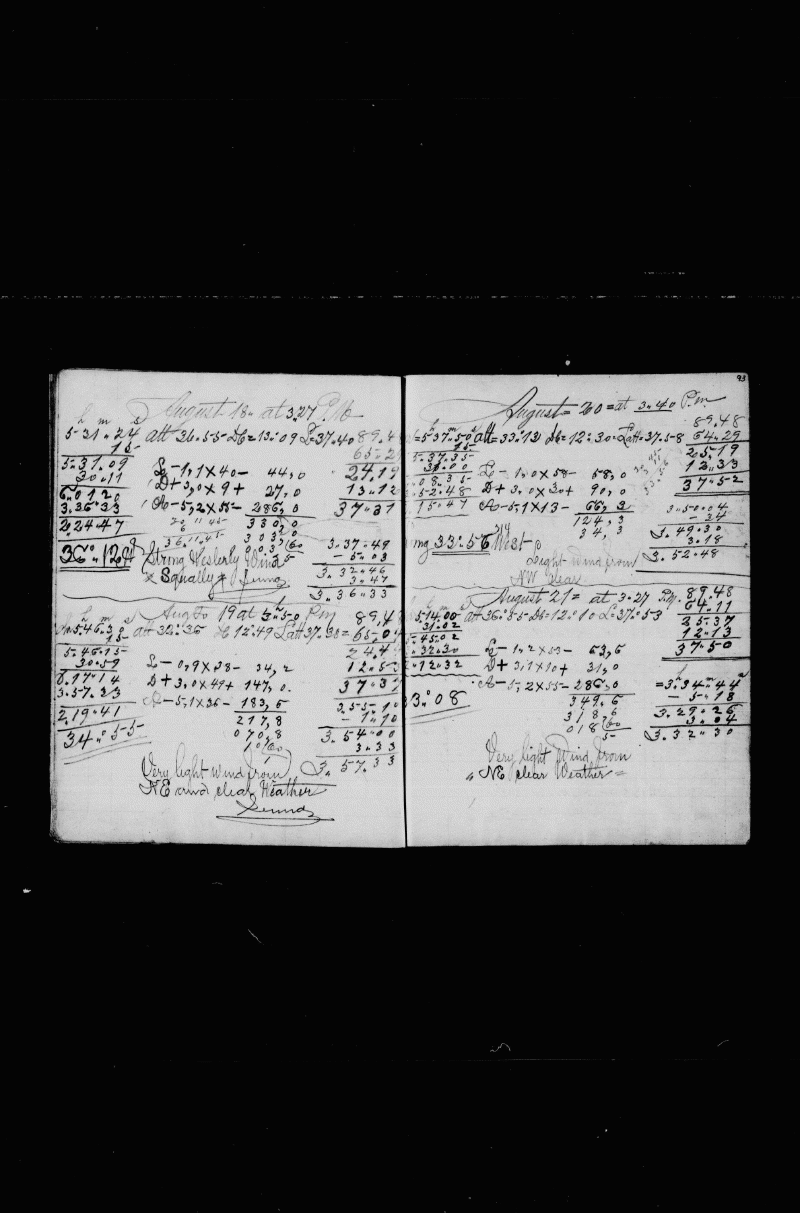 August 18" at 3.27 P.M.
5-31"24 alt 36.55- Db=13:09 L=37.40 89.4
15
5-31.09
30.11
6.01.20
3.36.33
2.24.47
36°"12
L- 1,1x40- 44,0
D+ 3,0x9+ 27,0
A- 5,2x55- 286,0
330,0
24.19
13.12
37.31
3.37.49
- 5.03
3.32.46
3.47
3.36.33
Strong Westerly Wind
Squally
Aug 19 at 3"50 P.m
5.46.30 alt 32:36 12:49 Latt 37.38= 65.0
15
5.46.15
30.59
6.17.14
3.57.33
2.19.41
34:55
L- 0,9x38- 34,2
D+ 3,0x49+ 147,0
A- 5,1x36- 183,6
217,8
070,8
24.4
12.5
37.37
3.55.10
- 1.10
3.54.00
3.33
3.57.33
Very light wind from
NE and clear Weather
93
August= 20= at 3"40 P.m
=5"37.50 alt= 33:13 Db=12:30 Latt=37.58
15
5.37.35
31.00
.08.35
.52.48
15.47
L- 1,0x58- 58,0
D+ 3,0x30+ 90,0
A- 5,1x13- 66,3
124,3
34,3
89.48
64.29
25.19
12.33
37.52
3.50.04
- 34
3.49.30
3.18
3.52.48
33:56 West
Light wind from
NW clear
August 21= at 3.27 P.M.
5.14.00 alt 36:55 Db=12:10 L=37:53
31.02
5.45.02
3.32.30
2.12.32
3:08
L- 1,2x53- 63,6
D+ 3,1x10+ 31,0
A- 5,2x55- 286,0
349.6
318,6
89.48
64.11
25.37
12.13
37.50
=3.34.44
- 5.18
3.29.26
3.04
3.32.30
Very light Wind from
NE clear Weather=